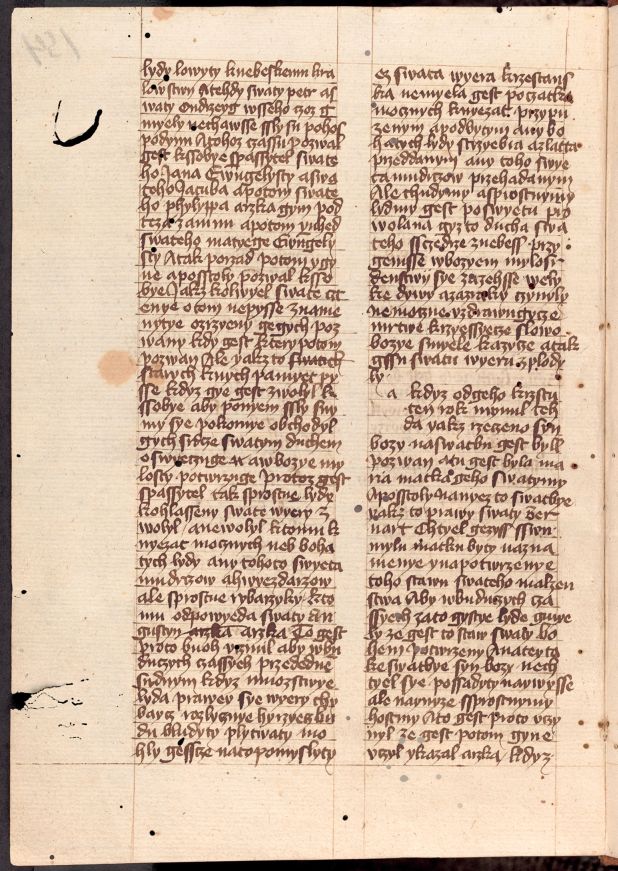 lydy lowyty knebeskemu kra
lowstwy Atehdy swaty petr as
waty Ondrzey wsseho czoz g
myely nechawsse ssly su pohos
podynu Atohoz czassu pozwal
gest kssobye spassytel swate
ho Jana Ewngelysty aswa
teho Jacuba Apotom swate
ho phylyppa arzka gym pod
teza zamnu apotom yuhed
swateho matyege Ewngely
sty Atak porzad potom ygy
ne aposstoly pozwal ksso
bye Jakz kolywyel swate czt
enye otom nepysse zname
nytye ozrzyeny gegych poz
wany kdy gest ktery potom
pozwan Ale yakz to swatich
starych knych pamyet py
sse kdyz gye gest zwolyl k
ssobye aby ponyem ssly su
my sye pokornye obchodyl
gych srdcze swatym duchem
oswyeczuge a wbozye my
losty potwrzuge protoz gest
spassytel tak sprostne lydy
kohlassenu swate wyery z
wolyl anewolyl ktomu k
nyezat mocznych neb boha
tych lydy any tohoto swyeta
mudrczow ahwyezdarzow
ale sprostne rybarzyky kto
mu odpowyeda swaty Au
gustyn arzka To gest
proto buoh uczynil aby wbu
duczych czassych przededne
sudnym kdyz mnozstwye
lyda prawey sye wyery chy
barzs rozlycznye hyrzyegi bu
du bluduty plytwaty mo
hly gessze natopomyslyty
ez swata wyera krzestans
ka nemyela gest poczatka
mocznych knyezat przypu
zenym apodbytym any bo
hatych lydy strzyebra azlatta
przeddanym any toho swye
ta mudrczow przehadanym
Ale chudymy asprostnymy
lydmy gest poswyetu pro
wolana gyz to ducha swa
teho sscedrze znebess przy
gemsse wbozyem mylosr
denstwy sye zazehsse wely
ke dywy azazraky czynyly
nemocne uzdrawugycze
mrtwe krzyessycze slowo
bozye smyele kazycze atak
gssu swatu wyeru zplody
ly
a kdyz odgeho krzstu
ten rok mynul teh
da yakz rzeczeno syn
bozy naswatbu gest byll
pozwan Atu gest byla ma
rya matka geho swatymy
Aposstoly Nanyez to swatbye
yakz to prawy swaty Ber
nart Chtyel gezyss sswu
mylu matku byty nazna
menye ynapotwrzenye
toho stawu swateho malzen
stwa Aby wbuduczych cza
ssyech zato gystye lyde gmye
ly ze gest to staw swaty bo
hem potwrzeny Anatey ta
ke swatbye syn bozy nech
tyel sye possadyty naywysse
ale naynyze ssprostnymy
hostmy Ato gest proto uczy
nyl ze gest potom gyne
uczyl ykazal arzka kdyz